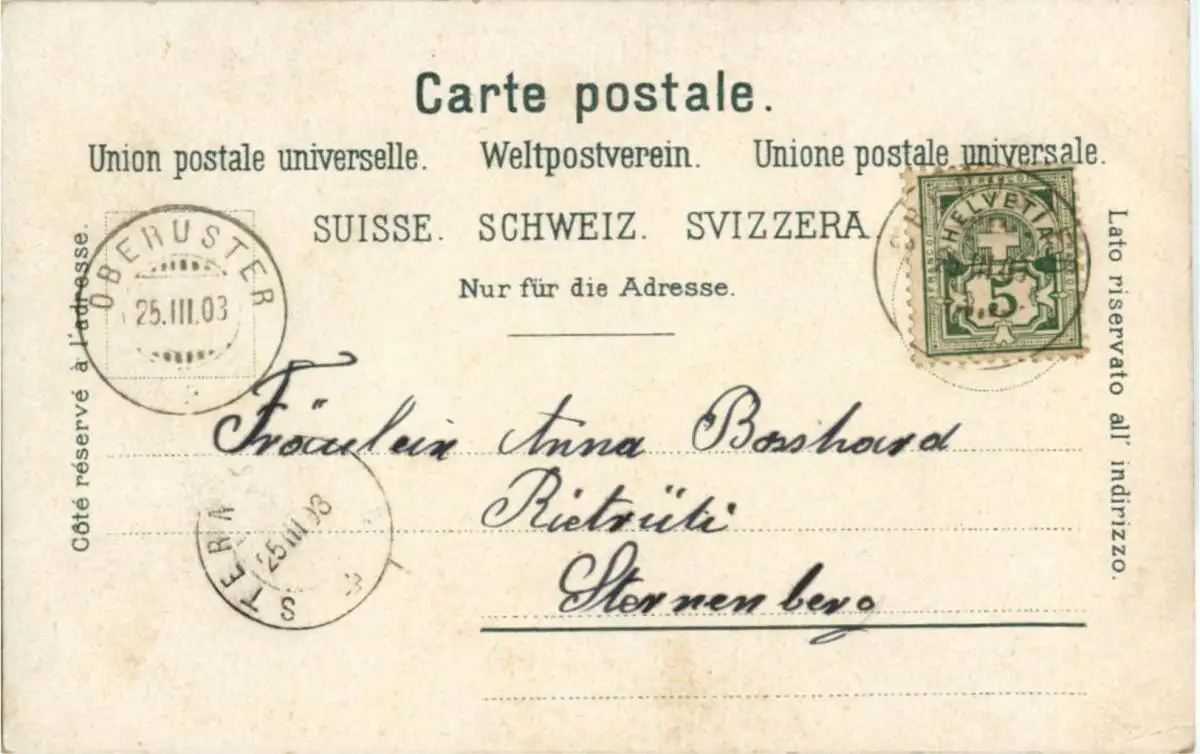 Carte postale.
Union postale universelle. Weltpostverein. Unione postale universale.
SUISSE. SCHWEIZ. SVIZZERA
Nur für die Adresse.
Côté réservé à l'adresse.
OBERUSTER
25.III.03
HELVETIA
FRANCO
5
Lato riservato all' indirizzo.
Fräulein Anna Bosshard
Rietrüti
Sternenberg
STERN
25 III 03